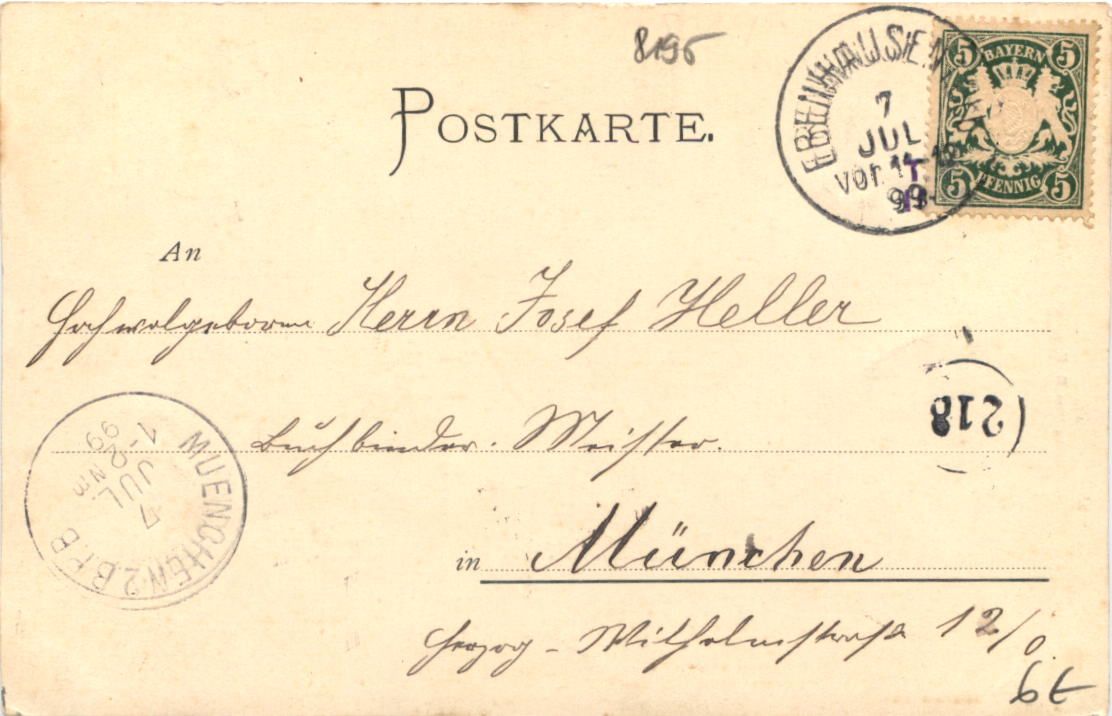 8195
POSTKARTE.
EBENHAUSEN
7
JUL
VOR 11-12
99
5 BAYERN 5
5 PFENNIG 5
An
Hochwolgeboren Herrn Josef Heller
Buchbinder-Meister.
218
MUENCHEN 2 B.P.B
7
JUL
1-2 NM
99
in München
Herzog-Wilhelmstraße 12/0.
6€